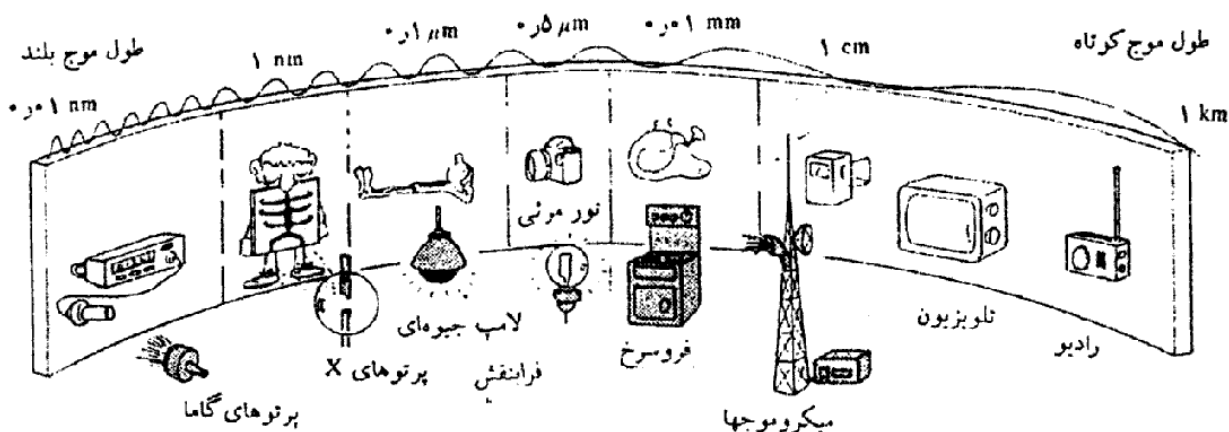 طول موج بلند
۰٫۰۱ nm
۱ nm
۰٫۱ μm
۰٫۵ μm
۰٫۰۱ mm
۱ cm
طول موج کوتاه
۱ km
نور مرئی
لامپ جیوه‌ای
پرتوهای X
پرتوهای گاما
فرابنفش
فروسرخ
میکروموجها
تلویزیون
رادیو